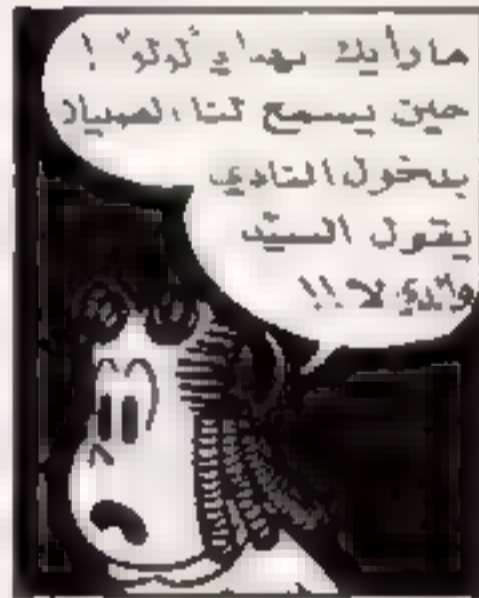 ما رأيك بهذا يا "لولو" !
حين يسمح لنا الصبيان
بدخول النادي
يقول السيّد
والدي لا !!